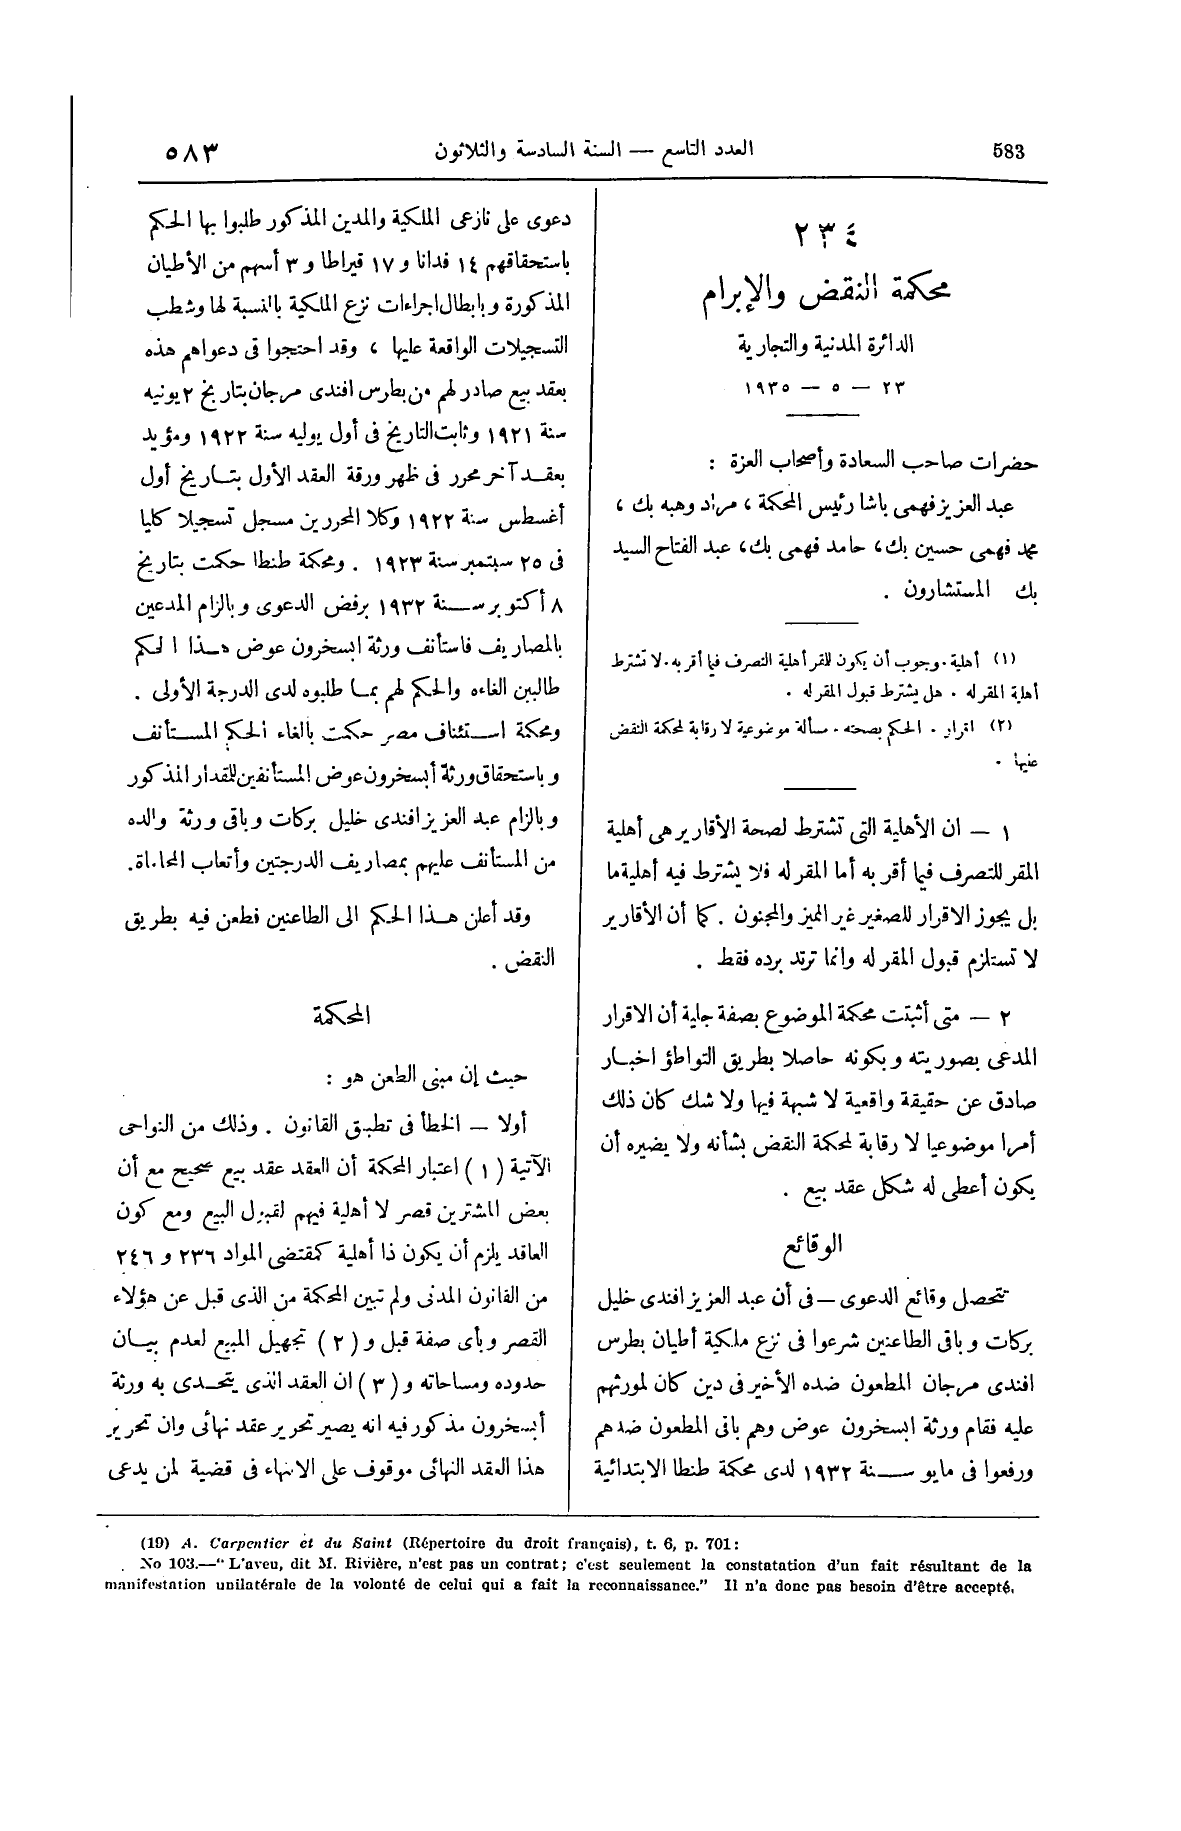 583
العدد التاسع — السنة السادسة والثلاثون
٥٨٣
٢٣٤
محكمة النقض والإبرام
الدائرة المدنية والتجارية
٢٣ — ٥ — ١٩٣٥
حضرات صاحب السعادة وأصحاب العزة :
عبد العزيز فهمى باشا رئيس المحكمة ، مراد وهبه بك ،
محمد فهمى حسين بك، حامد فهمى بك، عبد الفتاح السيد
بك المستشارون .
(١) أهلية . وجوب أن يكون للمقر أهلية التصرف فيما أقر به . لا تشترط
أهلية المقر له . هل يشترط قبول المقر له .
(٢) اقرار . الحكم بصحته . مسألة موضوعية لا رقابة لمحكمة النقض
عليها .
١ — ان الأهلية التى تشترط لصحة الأقارير هى أهلية
المقر للتصرف فيما أقر به أما المقر له فلا يشترط فيه أهلية ما
بل يجوز الاقرار للصغير غير المميز والمجنون . كما أن الأقارير
لا تستلزم قبول المقر له وانما ترتد برده فقط .
٢ — متى أثبتت محكمة الموضوع بصفة جلية أن الاقرار
المدعى بصوريته وبكونه حاصلا بطريق التواطؤ اخبار
صادق عن حقيقة واقعية لا شبهة فيها ولا شك كان ذلك
أمرا موضوعيا لا رقابة لمحكمة النقض بشأنه ولا يضيره أن
يكون أعطى له شكل عقد بيع .
الوقائع
تتحصل وقائع الدعوى — فى أن عبد العزيز افندى خليل
بركات وباقى الطاعنين شرعوا فى نزع ملكية أطيان بطرس
افندى مرجان المطعون ضده الأخير فى دين كان لمورثهم
عليه فقام ورثة ابسخرون عوض وهم باقى المطعون ضدهم
ورفعوا فى مايو سنة ١٩٣٢ لدى محكمة طنطا الابتدائية
دعوى على نازعى الملكية والمدين المذكور طلبوا بها الحكم
باستحقاقهم ١٤ فدانا و ١٧ قيراطا و ٣ أسهم من الأطيان
المذكورة وبابطال اجراءات نزع الملكية بالنسبة لها وشطب
التسجيلات الواقعة عليها ، وقد احتجوا فى دعواهم هذه
بعقد بيع صادر لهم من بطرس افندى مرجان بتاريخ ٢ يونيه
سنة ١٩٢١ وثابت التاريخ فى أول يوليه سنة ١٩٢٢ ومؤيد
بعقد آخر محرر فى ظهر ورقة العقد الأول بتاريخ أول
أغسطس سنة ١٩٢٢ وكلا المحررين مسجل تسجيلا كليا
فى ٢٥ سبتمبر سنة ١٩٢٣ . ومحكمة طنطا حكمت بتاريخ
٨ أكتوبر سنة ١٩٣٢ برفض الدعوى وبالزام المدعين
بالمصاريف فاستأنف ورثة ابسخرون عوض هذا الحكم
طالبين الغاءه والحكم لهم بما طلبوه لدى الدرجة الأولى .
ومحكمة استئناف مصر حكمت بالغاء الحكم المستأنف
وباستحقاق ورثة أبسخرون عوض المستأنفين للمقدار المذكور
وبالزام عبد العزيز افندى خليل بركات وباقى ورثة والده
من المستأنف عليهم بمصاريف الدرجتين وأتعاب المحاماة.
وقد أعلن هذا الحكم الى الطاعنين فطعن فيه بطريق
النقض .
المحكمة
حيث إن مبنى الطعن هو :
أولا — الخطأ فى تطبيق القانون . وذلك من النواحى
الآتية ( ١ ) اعتبار المحكمة أن العقد عقد بيع صحيح مع أن
بعض المشترين قصر لا أهلية فيهم لقبول البيع ومع كون
العاقد يلزم أن يكون ذا أهلية كمقتضى المواد ٢٣٦ و ٢٤٦
من القانون المدنى ولم تبين المحكمة من الذى قبل عن هؤلاء
القصر وبأى صفة قبل و ( ٢ ) تجهيل المبيع لعدم بيان
حدوده ومساحاته و ( ٣ ) ان العقد الذى يتحدى به ورثة
أبسخرون مذكور فيه انه يصير تحرير عقد نهائى وان تحرير
هذا العقد النهائى موقوف على الانهاء فى قضية لمن يدعى
(19) A. Carpentier et du Saint (Répertoire du droit français), t. 6, p. 701:
No 103.—“ L'aveu, dit M. Rivière, n'est pas un contrat; c'est seulement la constatation d'un fait résultant de la
manifestation unilatérale de la volonté de celui qui a fait la reconnaissance.” Il n'a donc pas besoin d'être accepté.